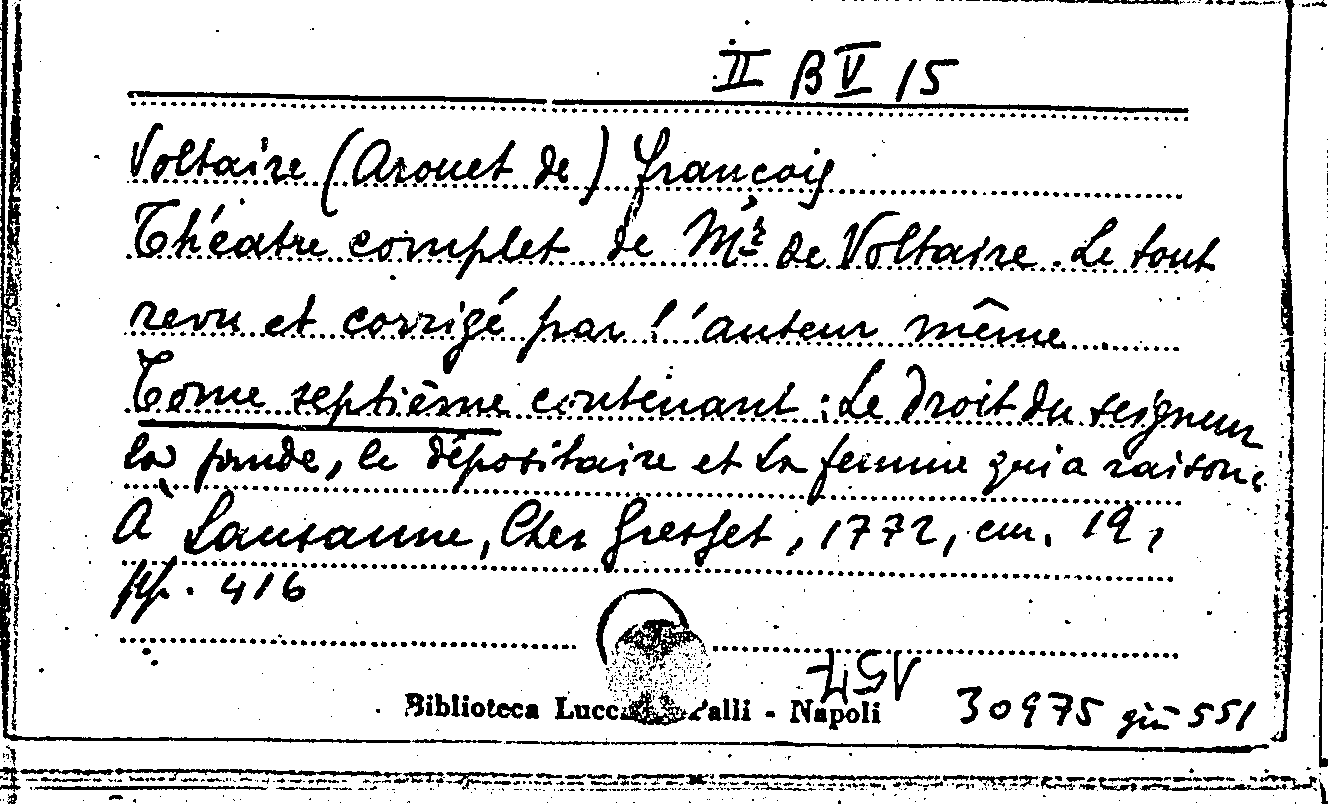 II B V 15
Voltaire (Arouet de) François
Théatre complet de Mr de Voltaire. Le tout
revu et corrigé par l'auteur même
Tome septième contenant: Le Droit du seigneur
la prude, le dépositaire et la femme qui a raison.
A Lausanne, Chez Grasset, 1772, cm. 19,
pp. 416
Biblioteca Palli - Napoli
30975 già 551